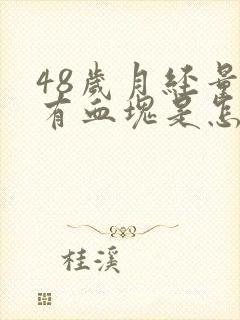 48歲月經量
有血塊是怎
桂溪